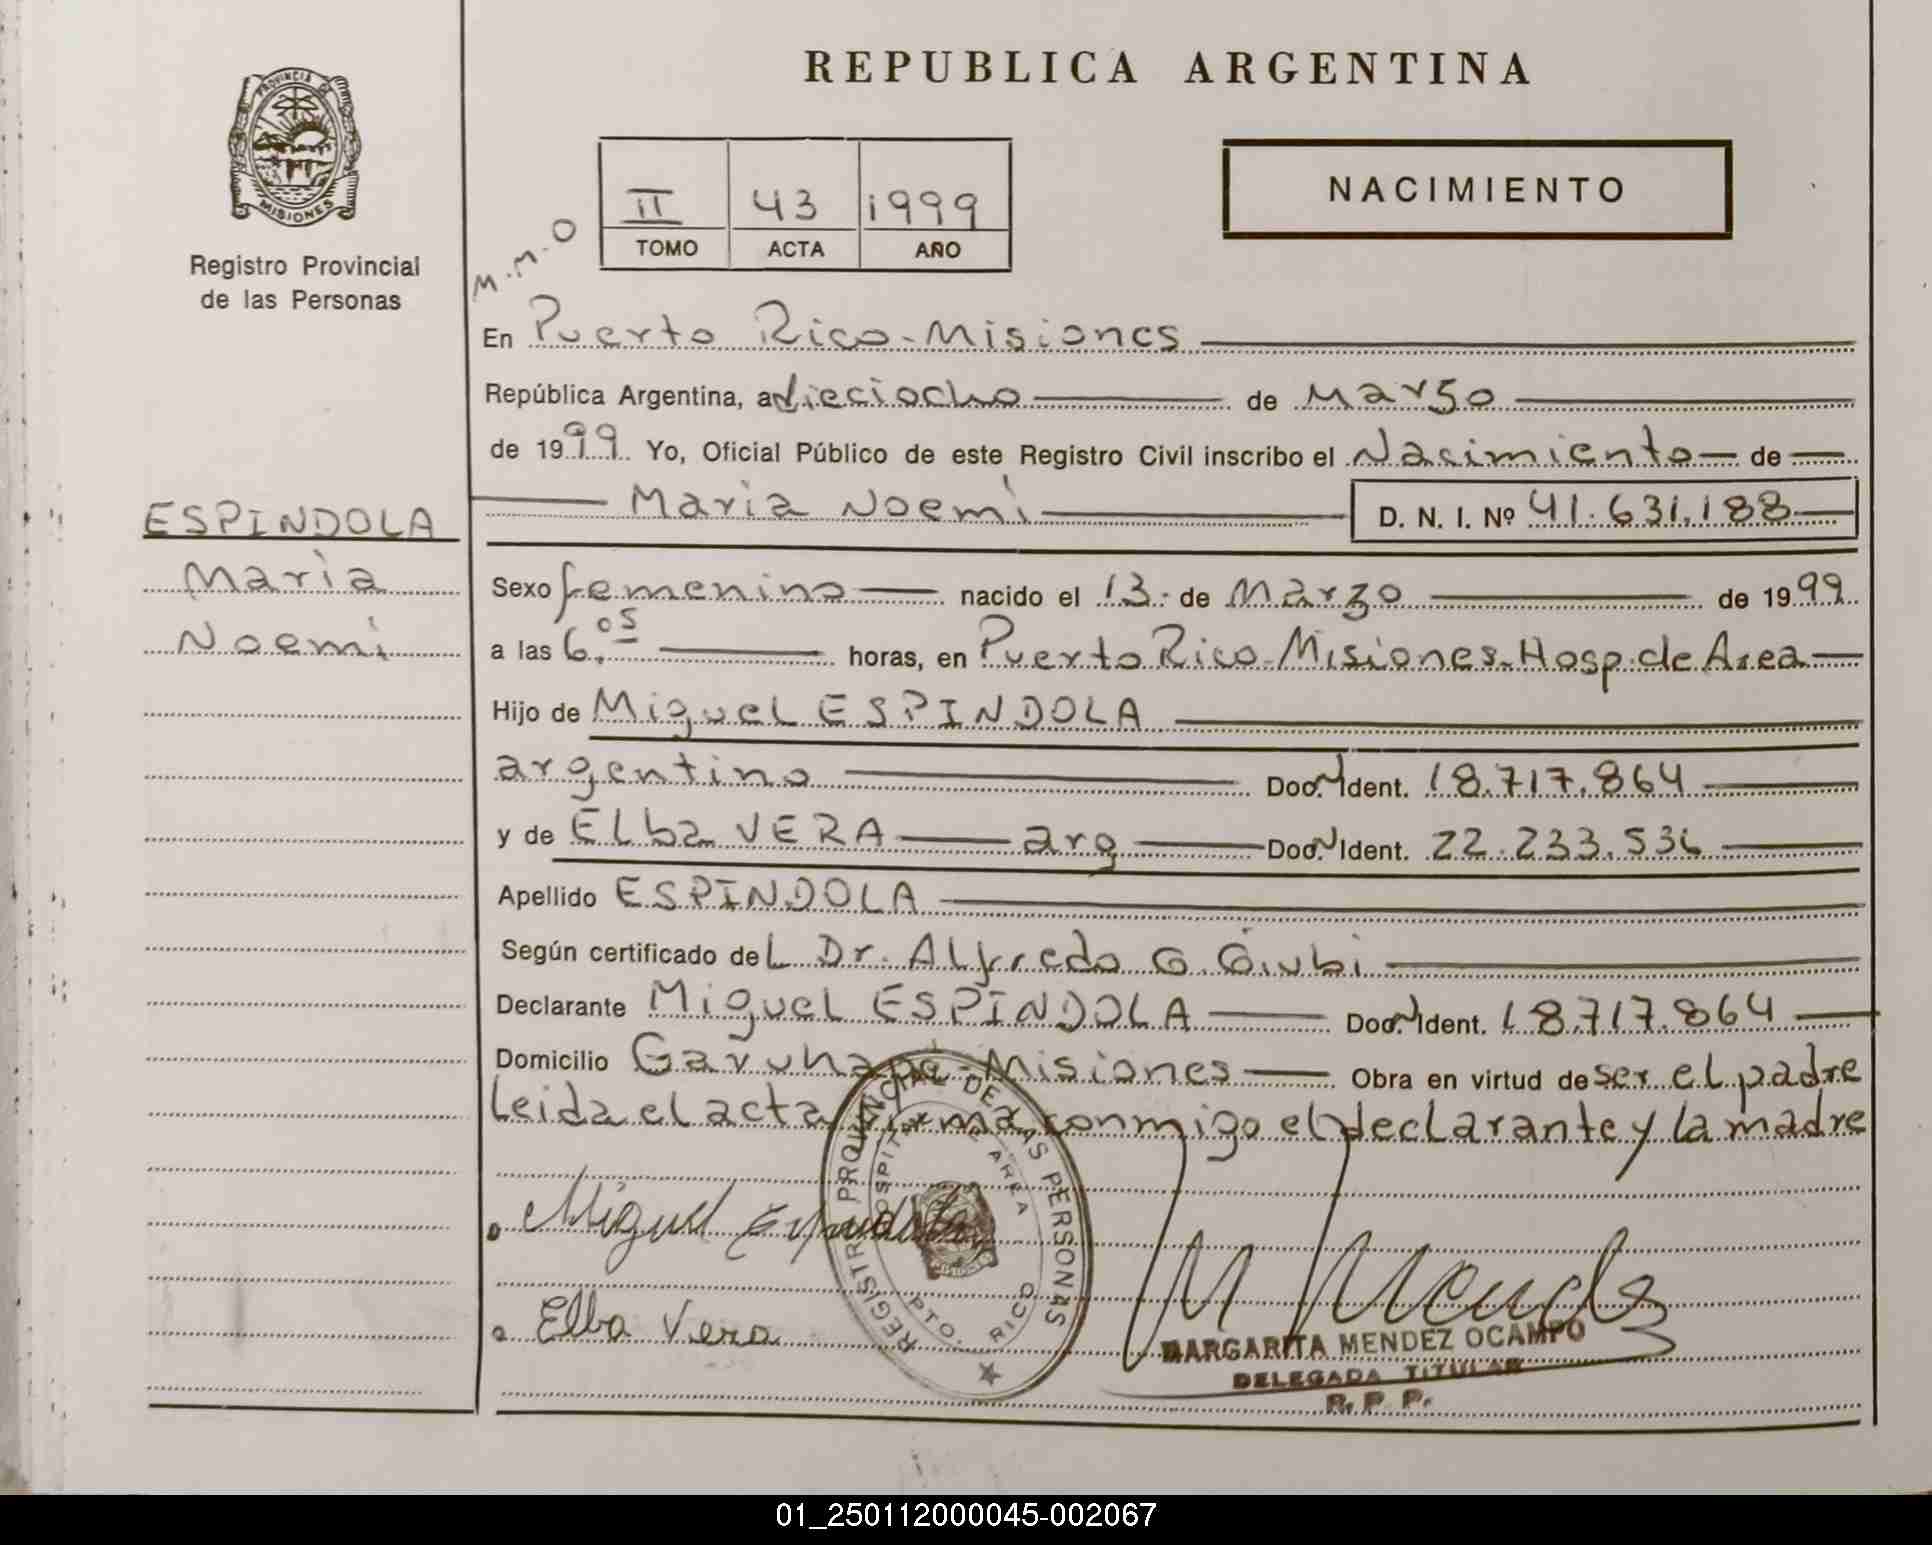 REPUBLICA ARGENTINA
PROVINCIA DE
MISIONES
Registro Provincial
de las Personas
II 43 1999
TOMO ACTA AÑO
NACIMIENTO
M.M.O
En Puerto Rico-Misiones
República Argentina, a dieciocho de Marzo
de 1999 Yo, Oficial Público de este Registro Civil inscribo el Nacimiento de
Maria Noemi D. N. I. Nº 41.631.188
ESPINDOLA
Maria
Noemi
Sexo femenino nacido el 13 de Marzo de 1999
a las 6.05 horas, en Puerto Rico-Misiones-Hosp. de Area
Hijo de Miguel ESPINDOLA
argentino Doc. Ident. 18.717.864
y de Elba VERA arg Doc. Ident. 22.233.536
Apellido ESPINDOLA
Según certificado del Dr. Alfredo G.
Declarante Miguel ESPINDOLA Doc. Ident. 18.717.864
Domicilio Garuhapé-Misiones Obra en virtud de ser el padre
Leida el acta firma conmigo el declarante y la madre
Miguel Espindola
Elba Vera
REGISTRO PROVINCIAL DE LAS PERSONAS
HOSPITAL DE AREA
PTO. RICO
M Mendez
MARGARITA MENDEZ OCAMPO
DELEGADA TITULAR
R. P. P.
01_250112000045-002067